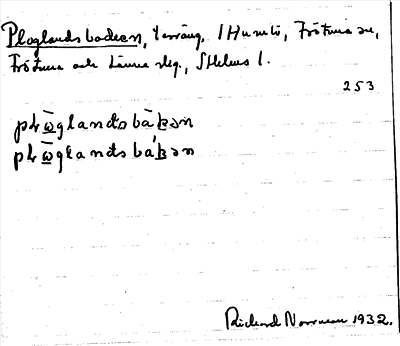 Ploglandsbacken, terräng, i Humlö, Frötuna sn,
Frötuna och Länna slg, Sthlms l.
253
plω̄glandsbàkən
plω̄glandsbákən
Richard Norrman 1932.